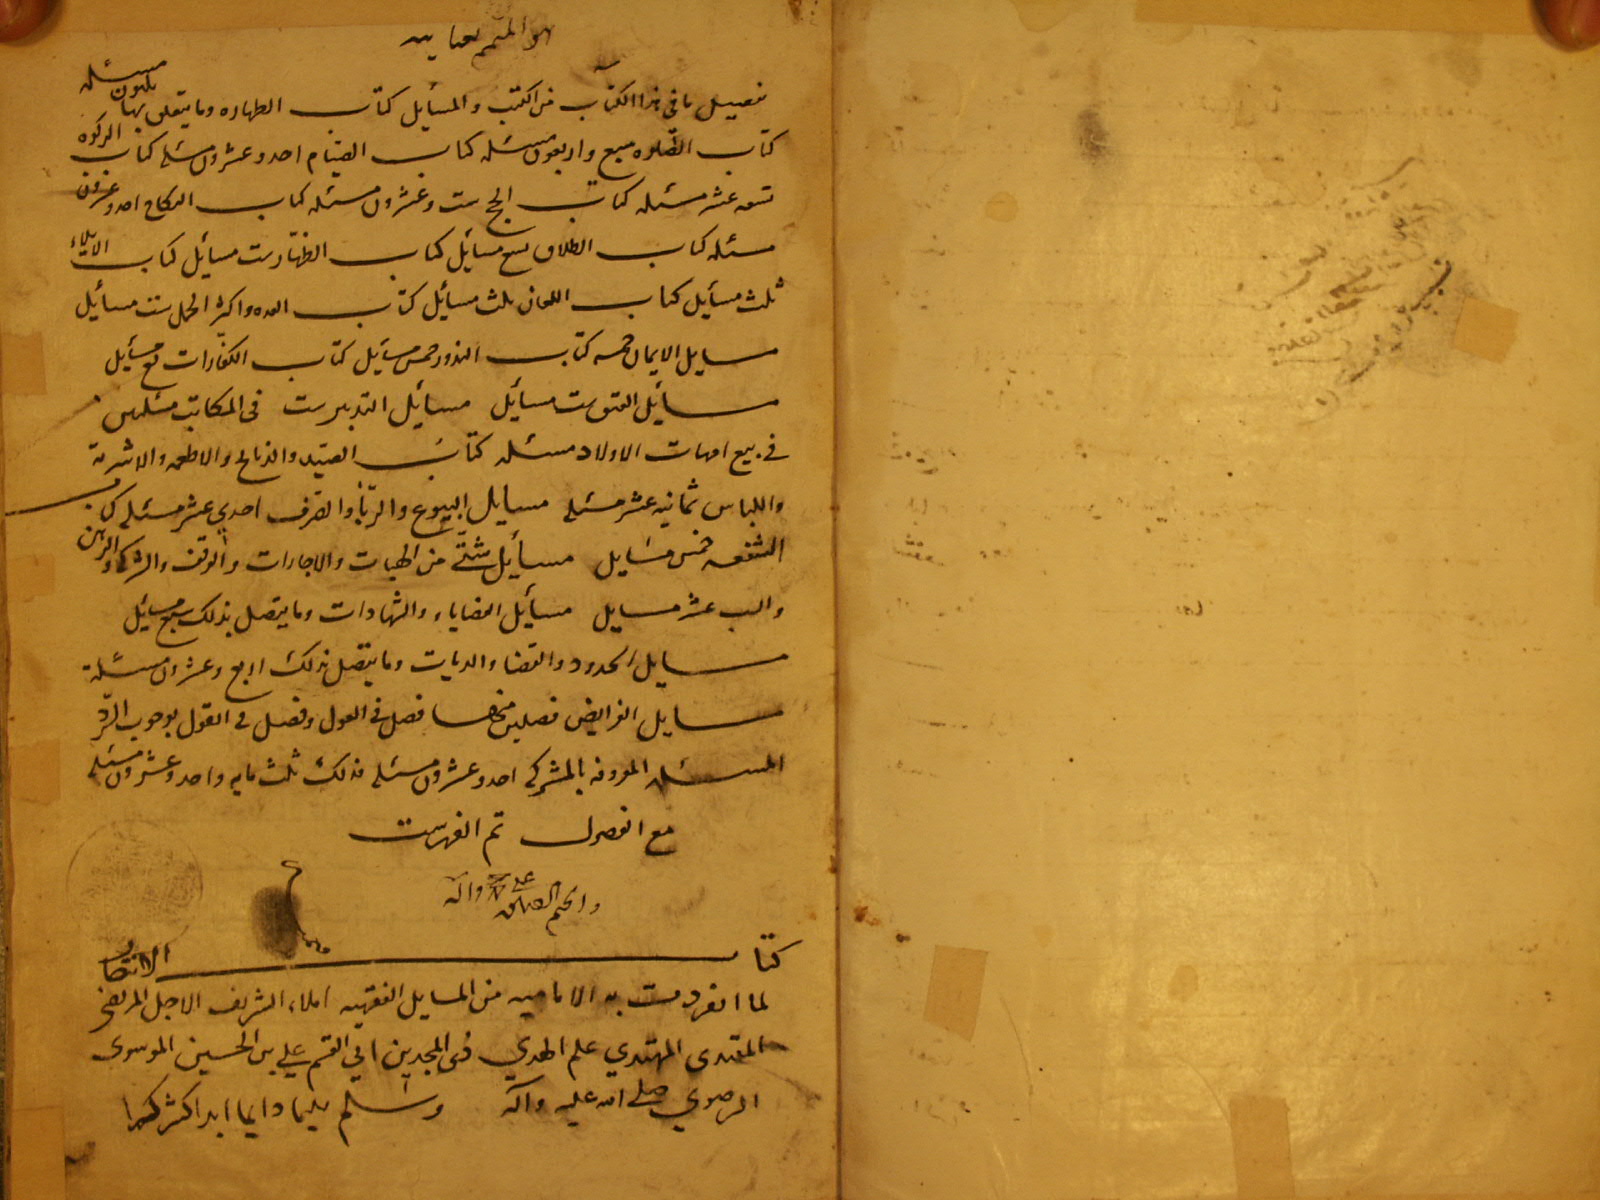 هو المتمم بعنايته
تفصيل ما فى هذا الكتاب من الكتب والمسايل كتاب الطهاره وما يتعلق بها ثلثون مسئله
كتاب الصلوه سبع واربعون مسئله كتاب الصيام احد وعشرون مسئله كتاب الزكوه
تسعه عشر مسئله كتاب الحج ست وعشرون مسئله كتاب النكاح احد وعشرون
مسئله كتاب الطلاق تسع مسايل كتاب الظهار ست مسايل كتاب الايلاء
ثلث مسايل كتاب اللعان ثلث مسايل كتاب العده واكثر الحمل ست مسايل
مسايل الايمان خمسه كتاب النذور خمس مسايل كتاب الكفارات مسايل
مسايل العتق ست مسايل مسايل التدبير ست فى المكاتب مسئلتين
فى بيع امهات الاولاد مسئله كتاب الصيد والذبايح والاطعمه والاشربة
واللباس ثمانيه عشر مسئله مسايل البيوع والربا والصرف احدي عشر مسئله كتاب
الشفعه خمس مسايل مسايل شتى من الهبات والاجارات والوقف والشركه والرهن
عشر مسايل مسايل القضايا والشهادات وما يتصل بذلك سبع مسايل
مسايل الحدود والقصا والديات وما يتصل بذلك اربع وعشرون مسئلة
مسايل الفرايض فصلين منها فصل فى العول وفصل فى القول بوجوب الرد
المسئله المعروفه بالمشركه احد وعشرون مسئله فذلك ثلث مايه واحد وعشرون مسئله
مع الفصول تم الفهرست
على وآله
كتاب الانتصار
لما انفردت به الاماميه من المسايل الفقهيه املاء الشريف الاجل المرتضى
المقتدى المهتدي علم الهدي ذى المجدين ابي القسم علي بن الحسين الموسوى
الرضوي صلى الله عليه وآله وسلم تسليما دايما ابدا كثيرا